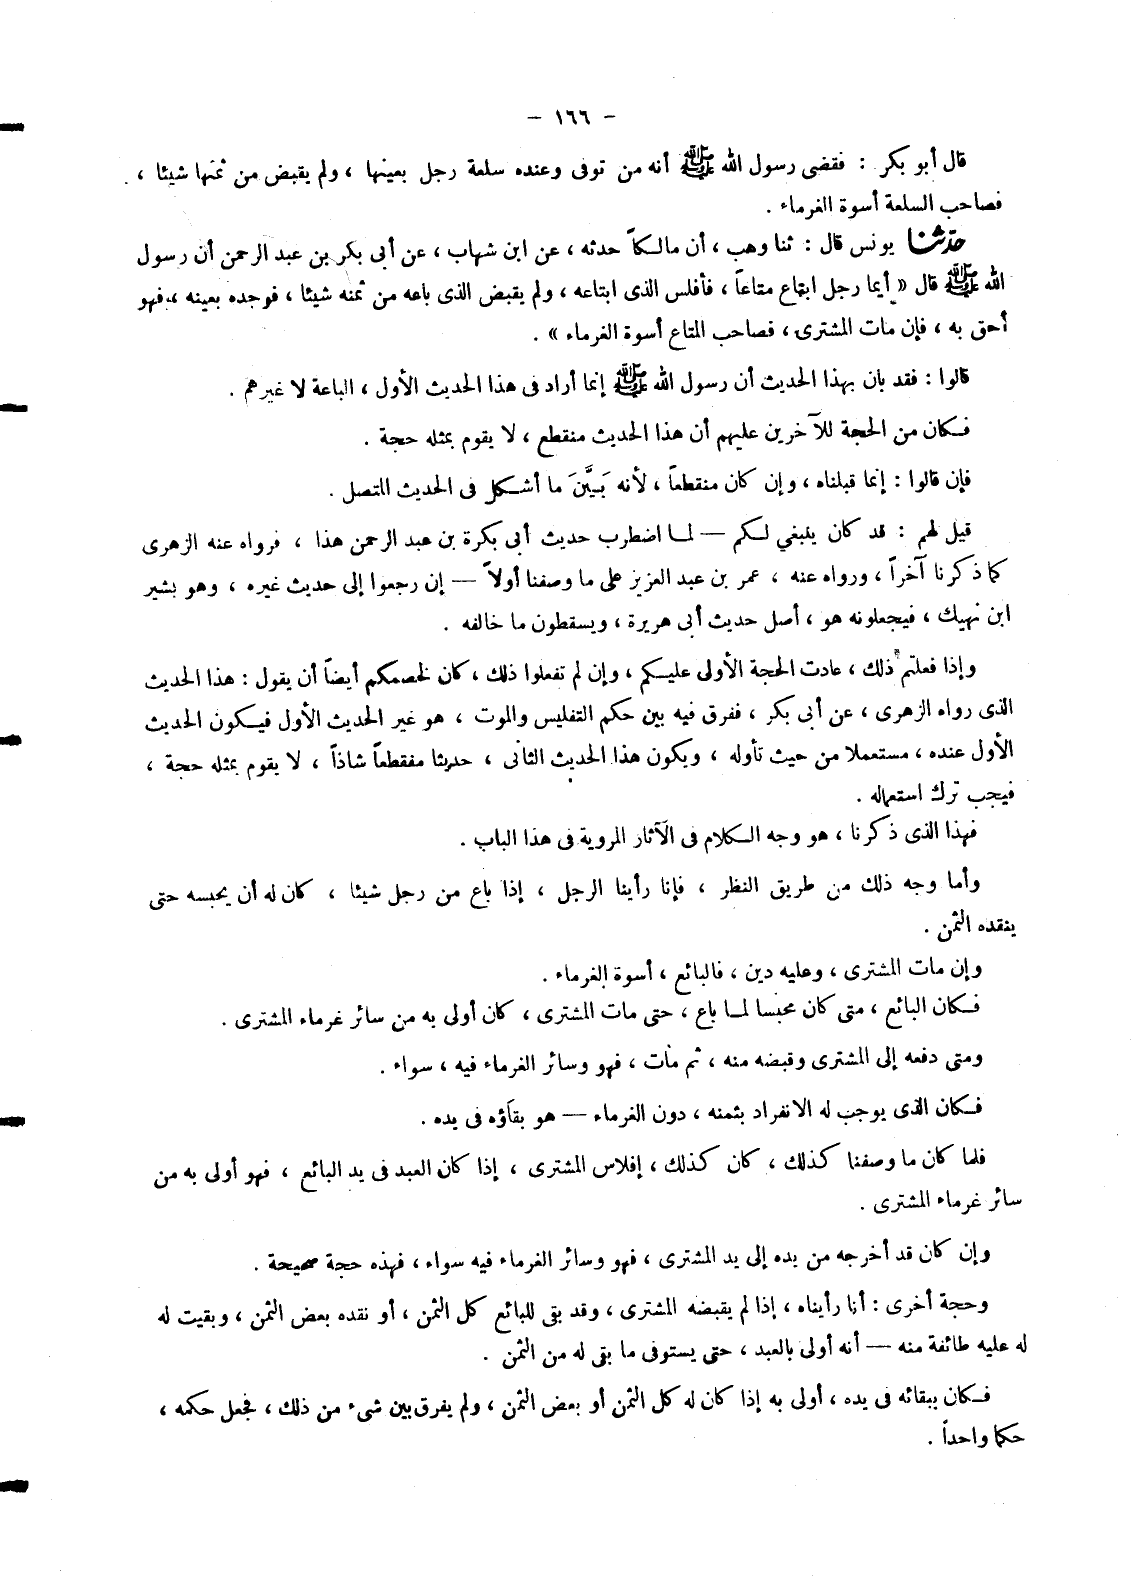 - ١٦٦ -
قال أبو بكر : فقضى رسول الله ﷺ أنه من توفى وعنده سلعة رجل بعينها ، ولم يقبض من ثمنها شيئا ،
فصاحب السلعة أسوة الغرماء .
حدّثنا يونس قال : ثنا وهب ، أن مالكاً حدثه ، عن ابن شهاب ، عن أبى بكر بن عبد الرحمن أن رسول
الله ﷺ قال « أيما رجل ابتاع متاعاً ، فأفلس الذى ابتاعه ، ولم يقبض الذى باعه من ثمنه شيئا ، فوجده بعينه ، فهو
أحق به ، فإن مات المشترى ، فصاحب المتاع أسوة الغرماء » .
قالوا : فقد بان بهذا الحديث أن رسول الله ﷺ إنما أراد فى هذا الحديث الأول ، الباعة لا غيرهم .
فكان من الحجة للآخرين عليهم أن هذا الحديث منقطع ، لا يقوم بمثله حجة .
فإن قالوا : إنما قبلناه ، وإن كان منقطعاً ، لأنه بَيَّنَ ما أشكل فى الحديث المتصل .
قيل لهم : قد كان ينبغي لكم — لما اضطرب حديث أبى بكرة بن عبد الرحمن هذا ، فرواه عنه الزهرى
كما ذكرنا آخراً ، ورواه عنه ، عمر بن عبد العزيز على ما وصفنا أولاً — إن رجعوا إلى حديث غيره ، وهو بشير
ابن نهيك ، فيجعلونه هو ، أصل حديث أبى هريرة ، ويسقطون ما خالفه .
وإذا فعلتم ذلك ، عادت الحجة الأولى عليكم ، وإن لم تفعلوا ذلك ، كان لخصمكم أيضاً أن يقول : هذا الحديث
الذى رواه الزهرى ، عن أبى بكر ، ففرق فيه بين حكم التفليس والموت ، هو غير الحديث الأول فيكون الحديث
الأول عنده ، مستعملا من حيث تأوله ، ويكون هذا الحديث الثانى ، حديثا منقطعاً شاذاً ، لا يقوم بمثله حجة ،
فيجب ترك استعماله .
فهذا الذى ذكرنا ، هو وجه الكلام فى الآثار المروية فى هذا الباب .
وأما وجه ذلك من طريق النظر ، فإنا رأينا الرجل ، إذا باع من رجل شيئا ، كان له أن يحبسه حتى
ينقده الثمن .
وإن مات المشترى ، وعليه دين ، فالبائع ، أسوة الغرماء .
فكان البائع ، متى كان محبسا لما باع ، حتى مات المشترى ، كان أولى به من سائر غرماء المشترى .
ومتى دفعه إلى المشترى وقبضه منه ، ثم مات ، فهو وسائر الغرماء فيه ، سواء .
فكان الذى يوجب له الانفراد بثمنه ، دون الغرماء — هو بقاؤه فى يده .
فلما كان ما وصفنا كذلك ، كان كذلك ، إفلاس المشترى ، إذا كان العبد فى يد البائع ، فهو أولى به من
سائر غرماء المشترى .
وإن كان قد أخرجه من يده إلى يد المشترى ، فهو وسائر الغرماء فيه سواء ، فهذه حجة صحيحة .
وحجة أخرى : أنا رأيناه ، إذا لم يقبضه المشترى ، وقد بقى للبائع كل الثمن ، أو نقده بعض الثمن ، وبقيت له
له عليه طائفة منه — أنه أولى بالعبد ، حتى يستوفى ما بقى له من الثمن .
فكان ببقائه فى يده ، أولى به إذا كان له كل الثمن أو بعض الثمن ، ولم يفرق بين شىء من ذلك ، فجعل حكمه ،
حكما واحداً .